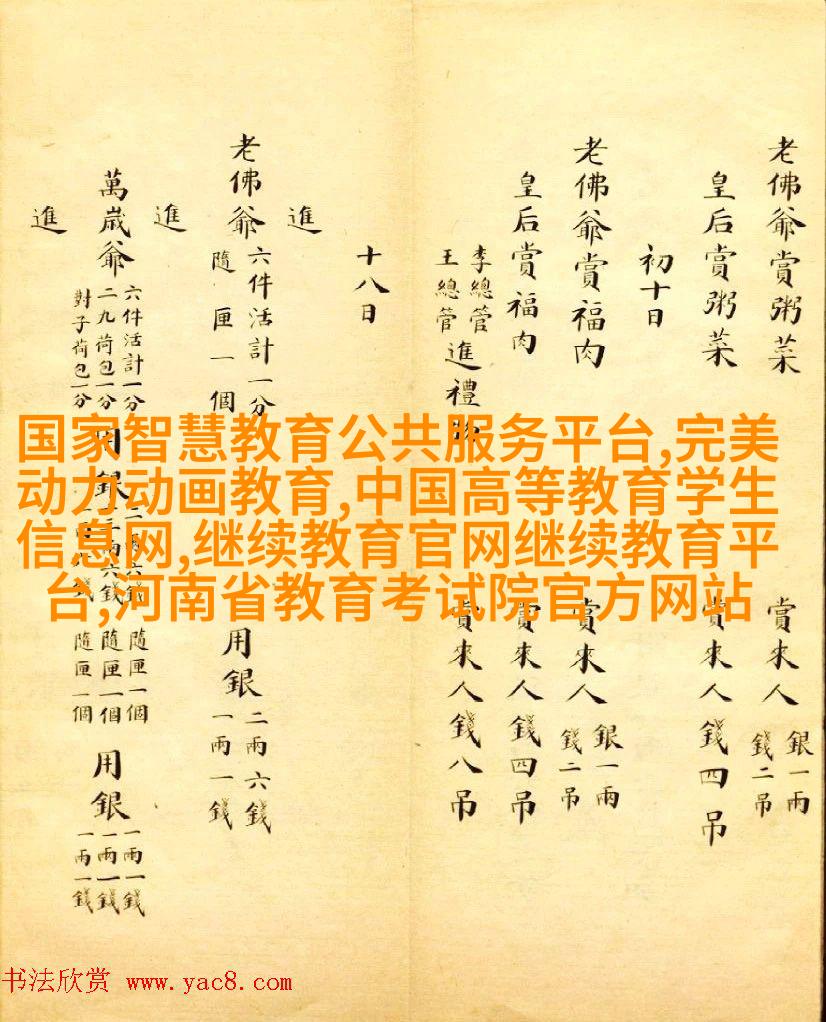 老佛爺賞粥菜 賞來人 銀一兩 錢二吊
皇后賞粥菜 賞來人錢四吊
初十日
老佛爺賞福肉 賞來人 銀一兩 錢二吊
皇后賞福肉 賞來人錢四吊
李總管 王總管 進禮 賞來人錢八吊
十八日
進
老佛爺 六件活計一分 隨匣一個 用銀 二兩六錢 一兩一錢
進
萬歲爺 六件活計一分 二九荷包一分 對子荷包一分 用銀 隨匣一個 隨匣一個 隨匣一個 用銀 一兩一錢 一兩一錢 一兩一錢
進
国家智慧教育公共服务平台,完美
动力动画教育,中国高等教育学生
信息网,继续教育官网继续教育平
台,河南省教育考试院官方网站
书法欣赏 www.yac8.com